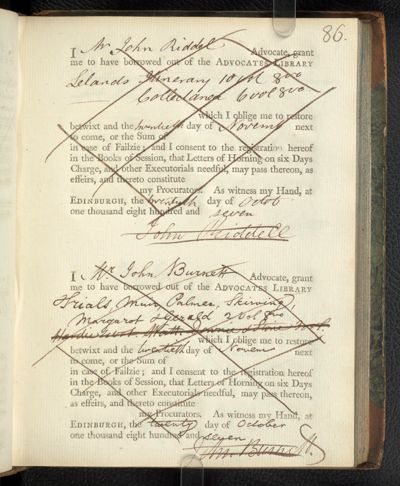 86.
I Mr John Riddel Advocate, grant
me to have borrowed out of the ADVOCATES LIBRARY
Lelands Itinerary 10 vol 8vo
Collectanea 6 vol 8vo
which I oblige me to restore
betwixt and the twentieth day of Novemr next
to come, or the Sum of
in case of Failzie; and I consent to the registration hereof
in the Books of Session, that Letters of Horning on six Days
Charge, and other Executorials needful, may pass thereon, as
effeirs, and thereto constitute
my Procurators. As witness my Hand, at
EDINBURGH, the twentieth day of Octob
one thousand eight hundred and seven
John Riddell
I Mr John Burnett Advocate, grant
me to have borrowed out of the ADVOCATES LIBRARY
Trials Muir Palmer, Skirving,
Margarot & Gerald 2 vol 8vo
which I oblige me to restore
betwixt and the twentieth day of Novem next
to come, or the Sum of
in case of Failzie; and I consent to the registration hereof
in the Books of Session, that Letters of Horning on six Days
Charge, and other Executorials needful, may pass thereon,
as effeirs, and thereto constitute
my Procurators. As witness my Hand, at
EDINBURGH, the twenty day of October
one thousand eight hundred and seven
Jn. Burnett